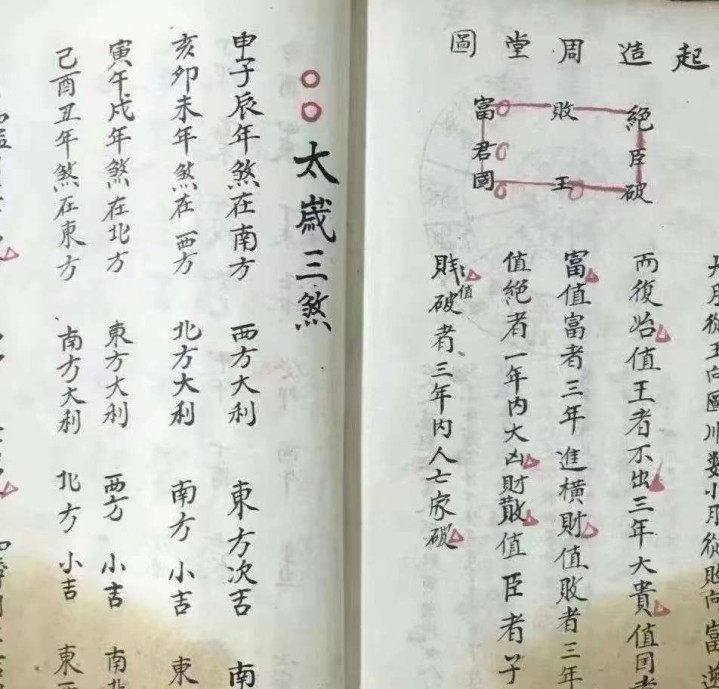 起造周堂圖
絕敗富
臣君
破王國
大月從王向國順數小月從敗向富逆
而復始值王者不出三年大貴值囯者
富值富者三年進橫財值敗者三年
值絕者一年内大凶財散值臣者子
值破者三年内人亡家破
太歲三煞
申子辰年煞在南方 西方大利 東方次吉 南
亥卯未年煞在西方 北方大利 南方小吉 東
寅午戌年煞在北方 東方大利 西方小吉 南北
己酉丑年煞在東方 南方大利 北方小吉 東西